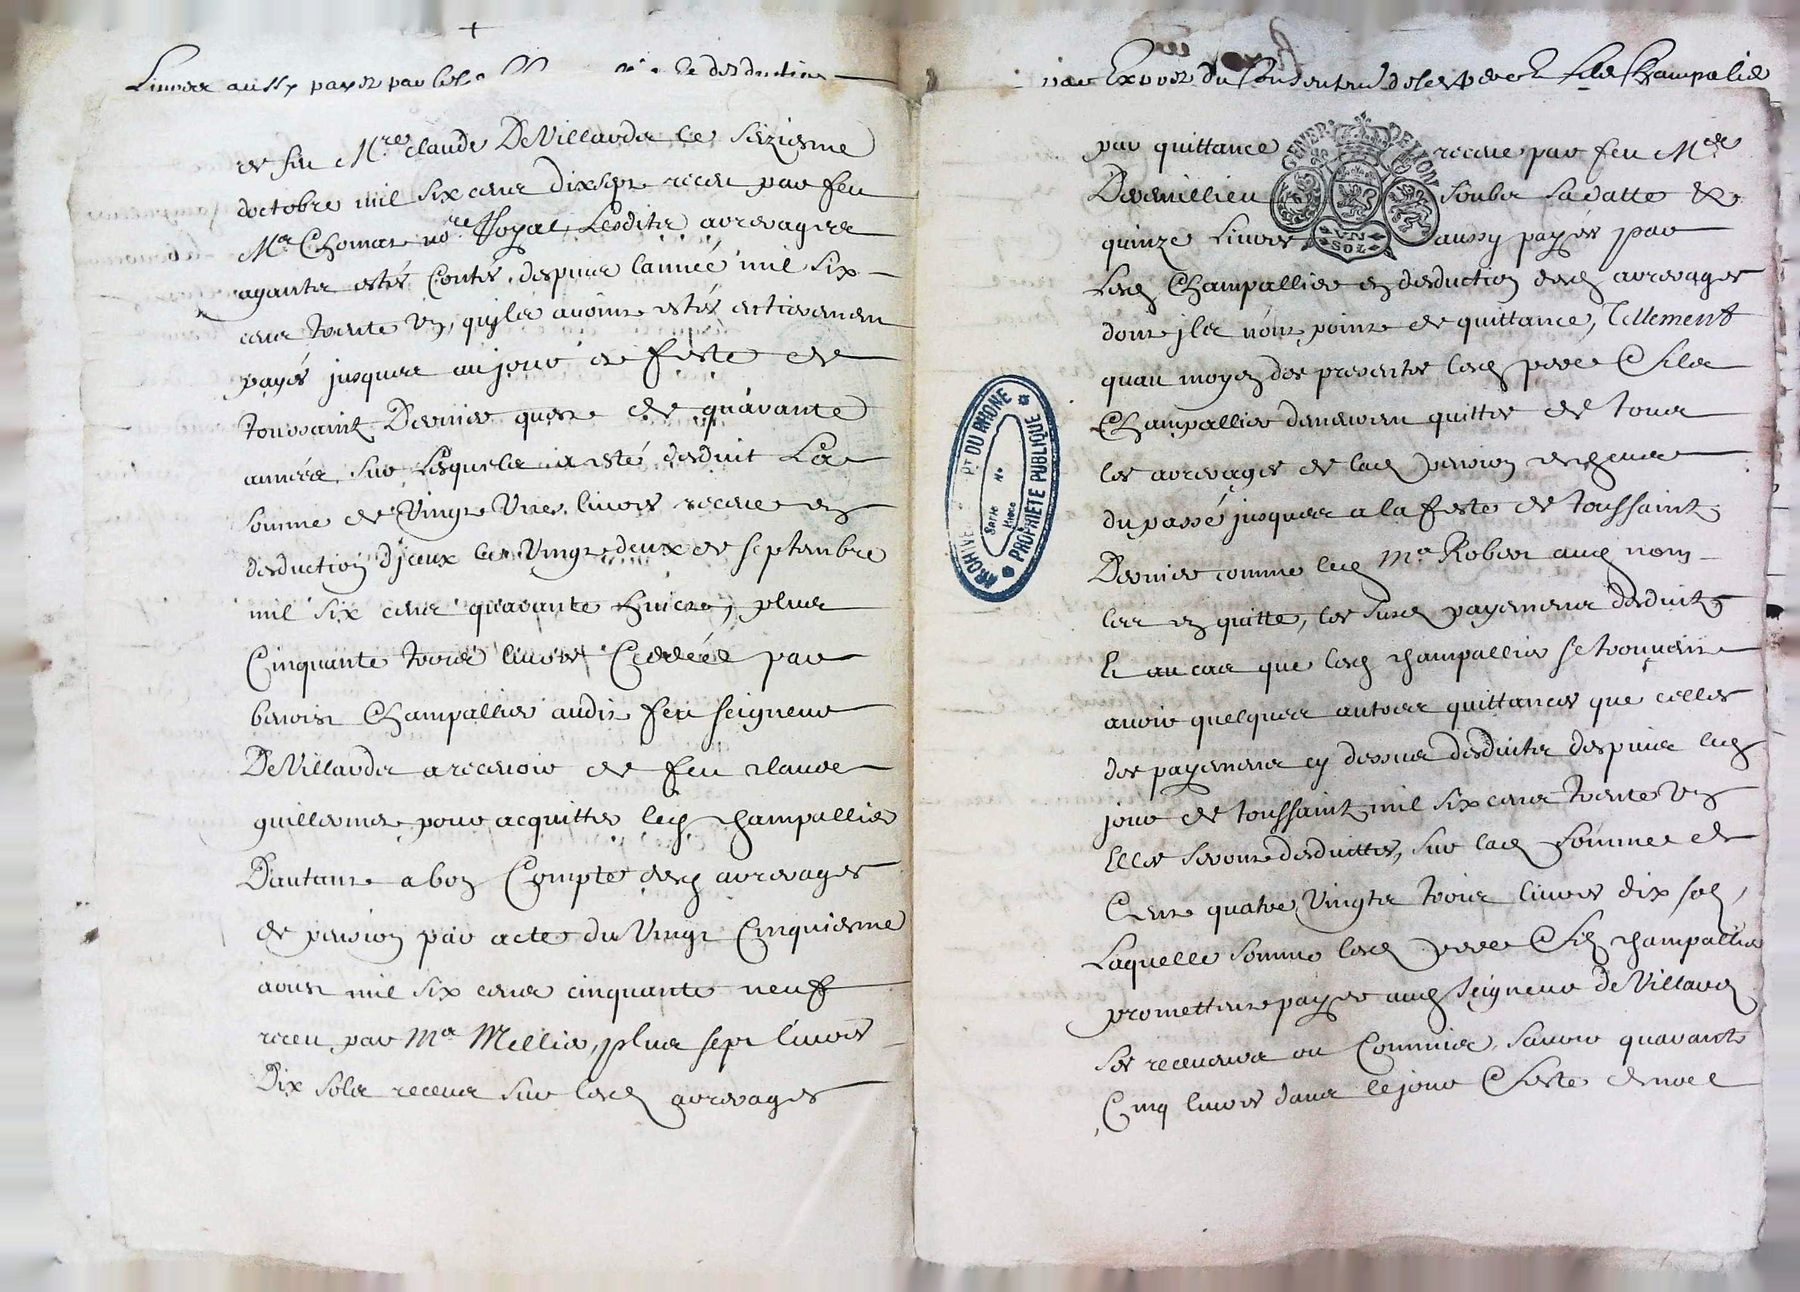 Livres aussy payer par les de desduction
Expres du Consentem.t desd. pere & filz Champalier
de feu M.re Claude DeVillardz le seiziesme
doctobre mil six cens dixsept receu par feu
M.e Thomas no.re Royal, Lesditz arrerages
ayantz estés Contés, despuis lannée mil six
cens trente un, quilz avoint estés entierement
payés jusques au jour de feste de
toussaintz Dernier quest de quarante
années, sur lesquelz a esté desduit La
somme de Vingt Unes livres receue en
desduction d'jceux le Vingt deux de septembre
mil six cens quarante huict, plus
Cinquante trois livres Ceddées par
benoist Champallier audit feu seigneur
DeVillardz a recevoir de feu claude
guillermet pour acquitter led. champallier
D'autant a bon Compte desd. arrerages
de pension par acte du Vingt Cinquiesme
aoust mil six cens cinquante neuf
receu par M.e Mellier, plus sept livres
Dix solz receus sur lesd. arrerages
par quittance receue par feu M.e
Deremillieu soubz sa datte &
quinze Livres aussy payés par
Lesd. Champallier en desduction desd. arrerages
dont ilz n'ont point de quittance, Tellement
quau moyen des presentes lesd. pere & filz
Champallier demeurent quittes de tous
les arrerages de lad. pension escheus
du passé jusques a la feste de toussaintz
Dernier comme led. M.e Robert aud. nom
les en quitte, les susd. payemens desduitz,
Et au cas que lesd. champallier se trouvent
avoir quelques autres quittances que celles
des payemens cy dessus desduitz despuis led.
jour de toussaintz mil six cens trente un
Elles seront desduittes, sur lad. somme de
Cent quatre Vingtz trois livres dix solz,
Laquelle somme lesd. pere & filz champallier
promettent payer aud. seigneur de Villardz
ses receveurs ou Commis, savoir quarante
Cinq livres dans le jour & feste de noel
GENER. DE LYON
UN SOL
ARCHIVES DPT DU RHONE
PROPRIÉTÉ PUBLIQUE
Serie No
Piece